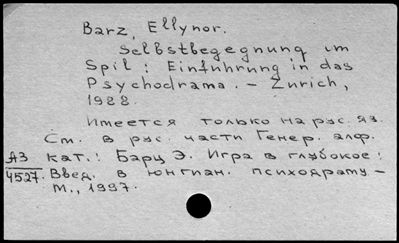 Barz, Ellynor.
Selbstbegegnung im
Spil : Einführung in das
Psychodrama. – Zurich,
1988.
Имеется только на рус. яз.
См. в рус. части Генер. алф.
АЗ кат.: Барц Э. Игра в глубокое:
4527. Введ. в юнгиан. психодраму –
М., 1997.